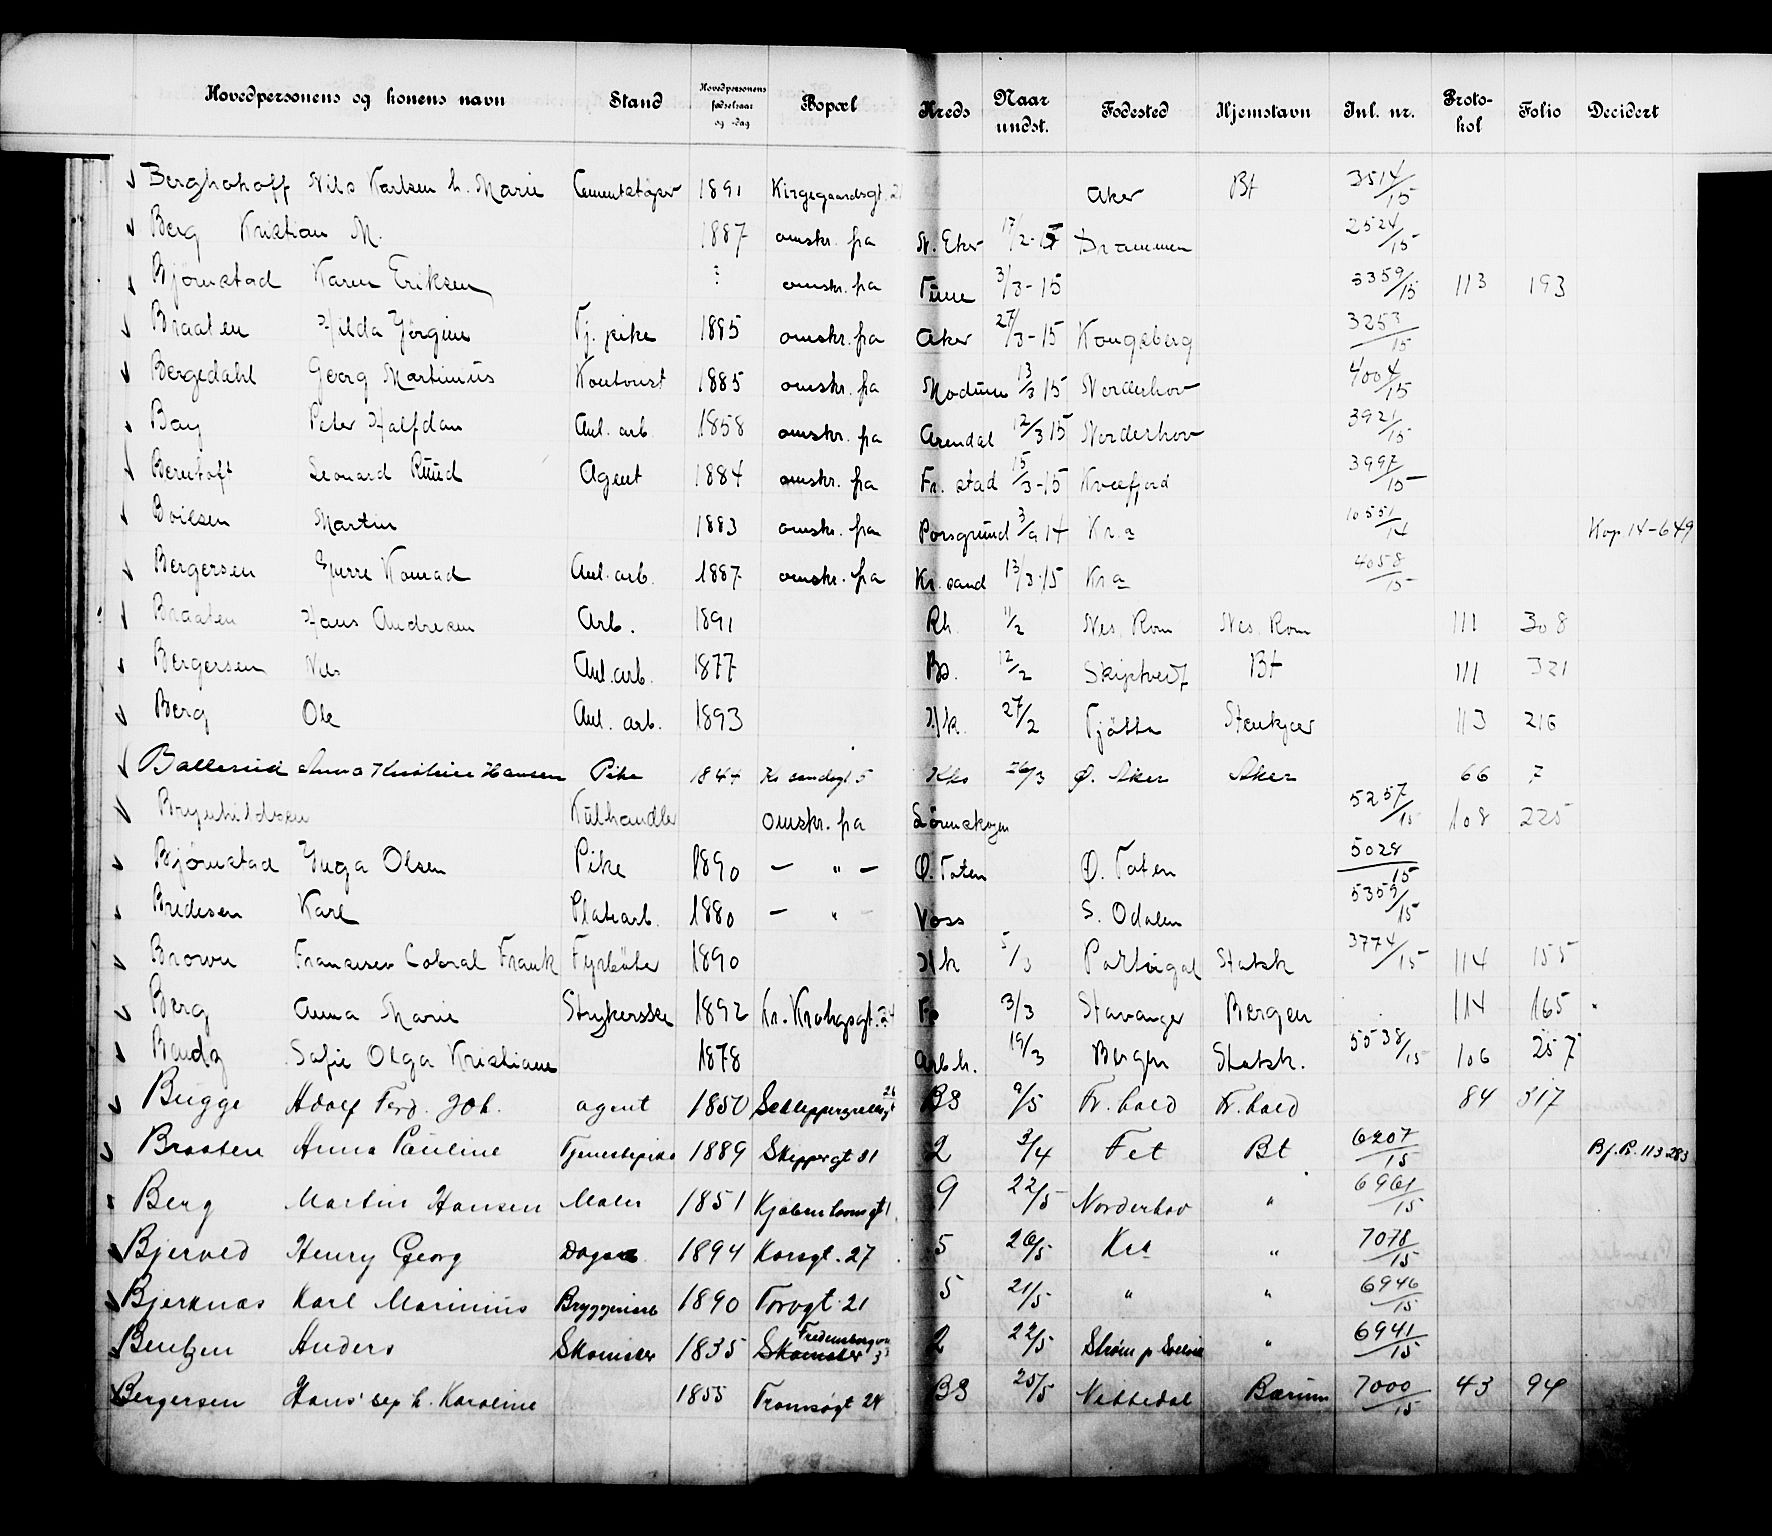 Hovedpersonens og konens navn Stand Hovedpersonens fødselsaar og -dag Bopæl Kreds Naar undst. Fødested Hjemstavn Inl. nr. Protokol Folio Decidert
Berghohoff Nils Karlsen h. Marie Cementstøper 1891 Kirgegaardsgt. 21 Aker Bt 3514/15
Berg Kristian M. 1887 omskr. fra N. Eker 17/2-15 Drammen 2524/15
Bjørnstad Karen Eriksen ? omskr. fra Tune 3/3-15 3359/15 113 193
Braaten Hilda Jörgine Tj. pike 1885 omskr. fra Aker 27/3-15 Kongsberg 3253/15
Bergedahl Georg Martinius Kontorist 1885 omskr. fra Modum 13/3 15 Norderhov 4004/15
Bay Peter Halfdan Anl. arb 1858 omskr. fra Arendal 12/3 15 Norderhov 3921/15
Berntoft Leonard Ruud Agent 1884 omskr. fra Fr. stad 15/3-15 Kvæfjord 3997/15
Boilsen Martin 1883 omskr. fra Porsgrund 3/9 14 Kr.a 10551/14 Kop 14-649
Bergersen Sjurre Konrad Anl. arb. 1887 omskr. fra Kr. sand 13/3-15 Kra 4058/15
Braaten Hans Andresen Arb. 1891 Rh. 11/2 Nes. Rom Nes. Rom 111 308
Bergersen Nils Anl. arb. 1877 Bs. 12/2 Skiptvedt Bt 111 321
Berg Ole Anl. arb. 1893 Hk. 27/2 Tjøtta Stenkjær 113 216
Ballerud Anna Kristine Hansen Pike 1844 Kr sandsgt 5 Kks 26/3 Ø. Aker Aker 66 7
Brynhildsen Kulhandler omskr. fra Lørenskogen 5257/15 108 225
Bjørnstad Inga Olsen Pike 1890 — " — Ø. Toten Ø. Toten 5028/15
Bredesen Karl Platearb. 1880 — " — Voss S. Odalen 5359/15
Brown Francisco Cabral Frank Fyrbøter 1890 Hk 5/3 Portugal Statsk 3774/15 114 155
Berg Anna Marie Strykerske 1892 Kr. Krohgsgt. 24 Fp 3/3 Stavanger Bergen 114 165
Bandz Sofie Olga Kristiane 1878 Arb.h. 19/3 Bergen Statsk. 5538/15 106 257
Bugge Adolf Ferd. Joh. agent 1850 Schleppegrellsgt 26 BS 9/5 Fr. hald Fr. hald 84 517
Braaten Anna Pauline Tjenestepike 1889 Skippergt 31 2 3/4 Fet Bt 6207/15 Bj. P. 113 283
Berg Martin Hansen Maler 1851 Kjøbenhavnsgt 1 9 22/5 Norderhov " 6961/15
Bjerved Henry Georg Dagarb 1894 Korsgt. 27 5 26/5 Kra " 7078/15
Bjerknas Karl Marinius Bryggeriarb 1890 Torvgt. 21 5 21/5 " " 6946/15
Bentzen Anders Skomaker 1835 Skomaker 33 2 22/5 Strøm p Svelvik " 6941/15
Bergersen Hans sep h. Karoline 1855 Tromsøgt 24 BS 25/5 Nittedal Bærum 7000/15 43 94